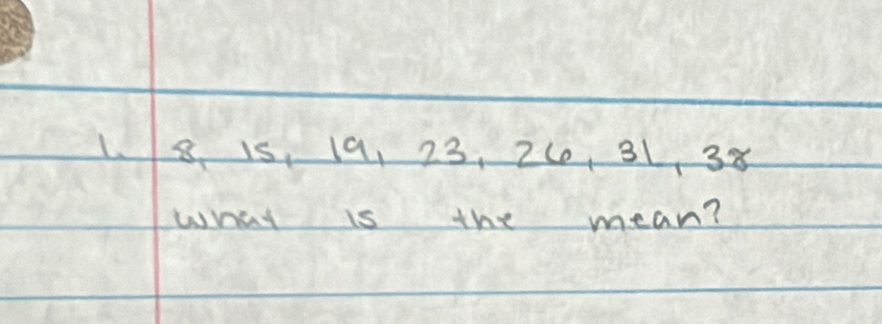 1. 8, 15, 19, 23, 26, 31, 38
what is the mean?